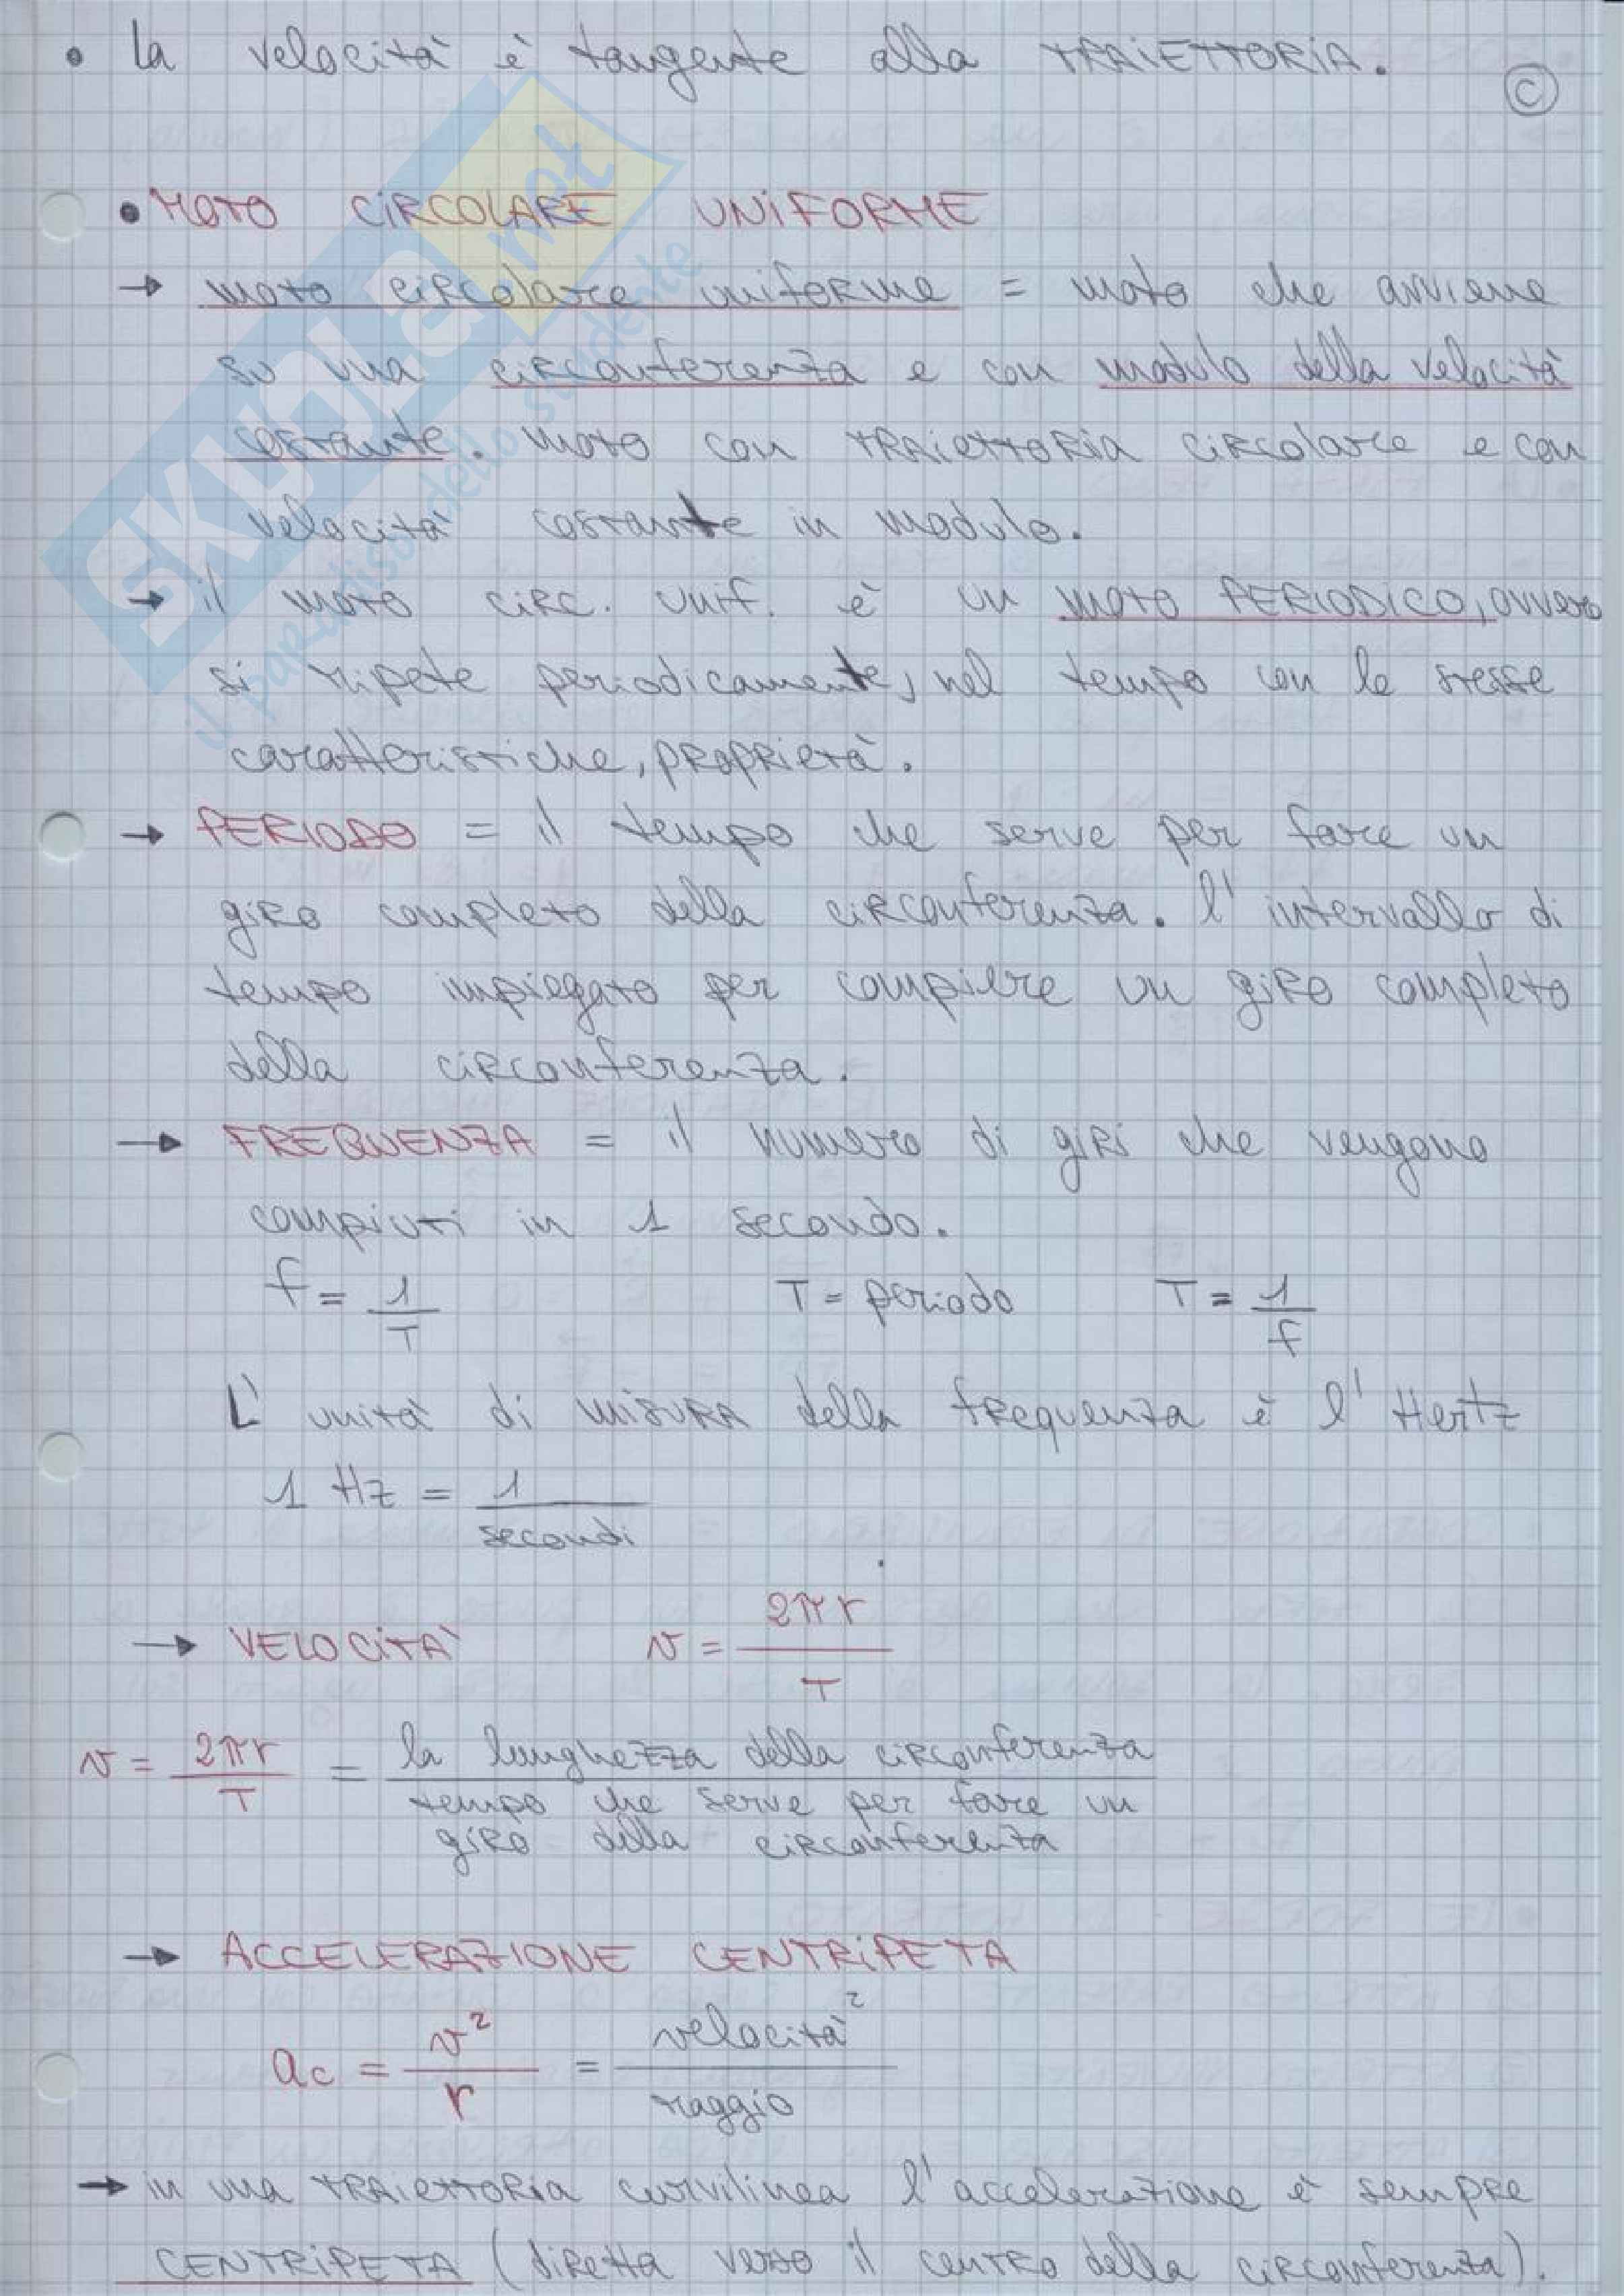 • la velocità è tangente alla TRAIETTORIA.
C
• MOTO CIRCOLARE UNIFORME
→ moto circolare uniforme = moto che avviene
su una circonferenza e con modulo della velocità
costante. moto con traiettoria circolare e con
velocità costante in modulo.
→ il moto circ. unif. è un moto PERIODICO, ovvero
si ripete periodicamente, nel tempo con le stesse
caratteristiche, proprietà.
→ PERIODO = il tempo che serve per fare un
giro completo della circonferenza. l'intervallo di
tempo impiegato per compiere un giro completo
della circonferenza.
→ FREQUENZA = il numero di giri che vengono
compiuti in 1 secondo.
f = 1/T T = periodo T = 1/f
L'unità di misura della frequenza è l'Hertz
1 Hz = 1/secondi
→ VELOCITÀ v = 2πr/T
v = 2πr/T = la lunghezza della circonferenza
tempo che serve per fare un
giro della circonferenza
→ ACCELERAZIONE CENTRIPETA
ac = v²/r = velocità²/raggio
→ in una traiettoria curvilinea l'accelerazione è sempre
CENTRIPETA (diretta verso il centro della circonferenza).
SKUOLA.net
il paradiso dello studente